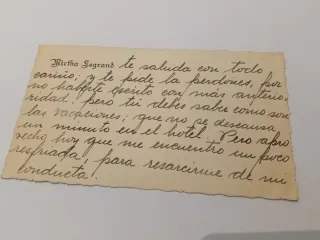 Mirtha Legrand te saluda con todo
cariño, y te pide la perdones, por
no haberte escrito con más anterio-
ridad! pero tú debes saber como son
las vacaciones; que no se descansa
un minuto en el hotel. Pero apro
vecho hoy que me encuentro un poco
resfriada, para resarcirme de mi
conducta.